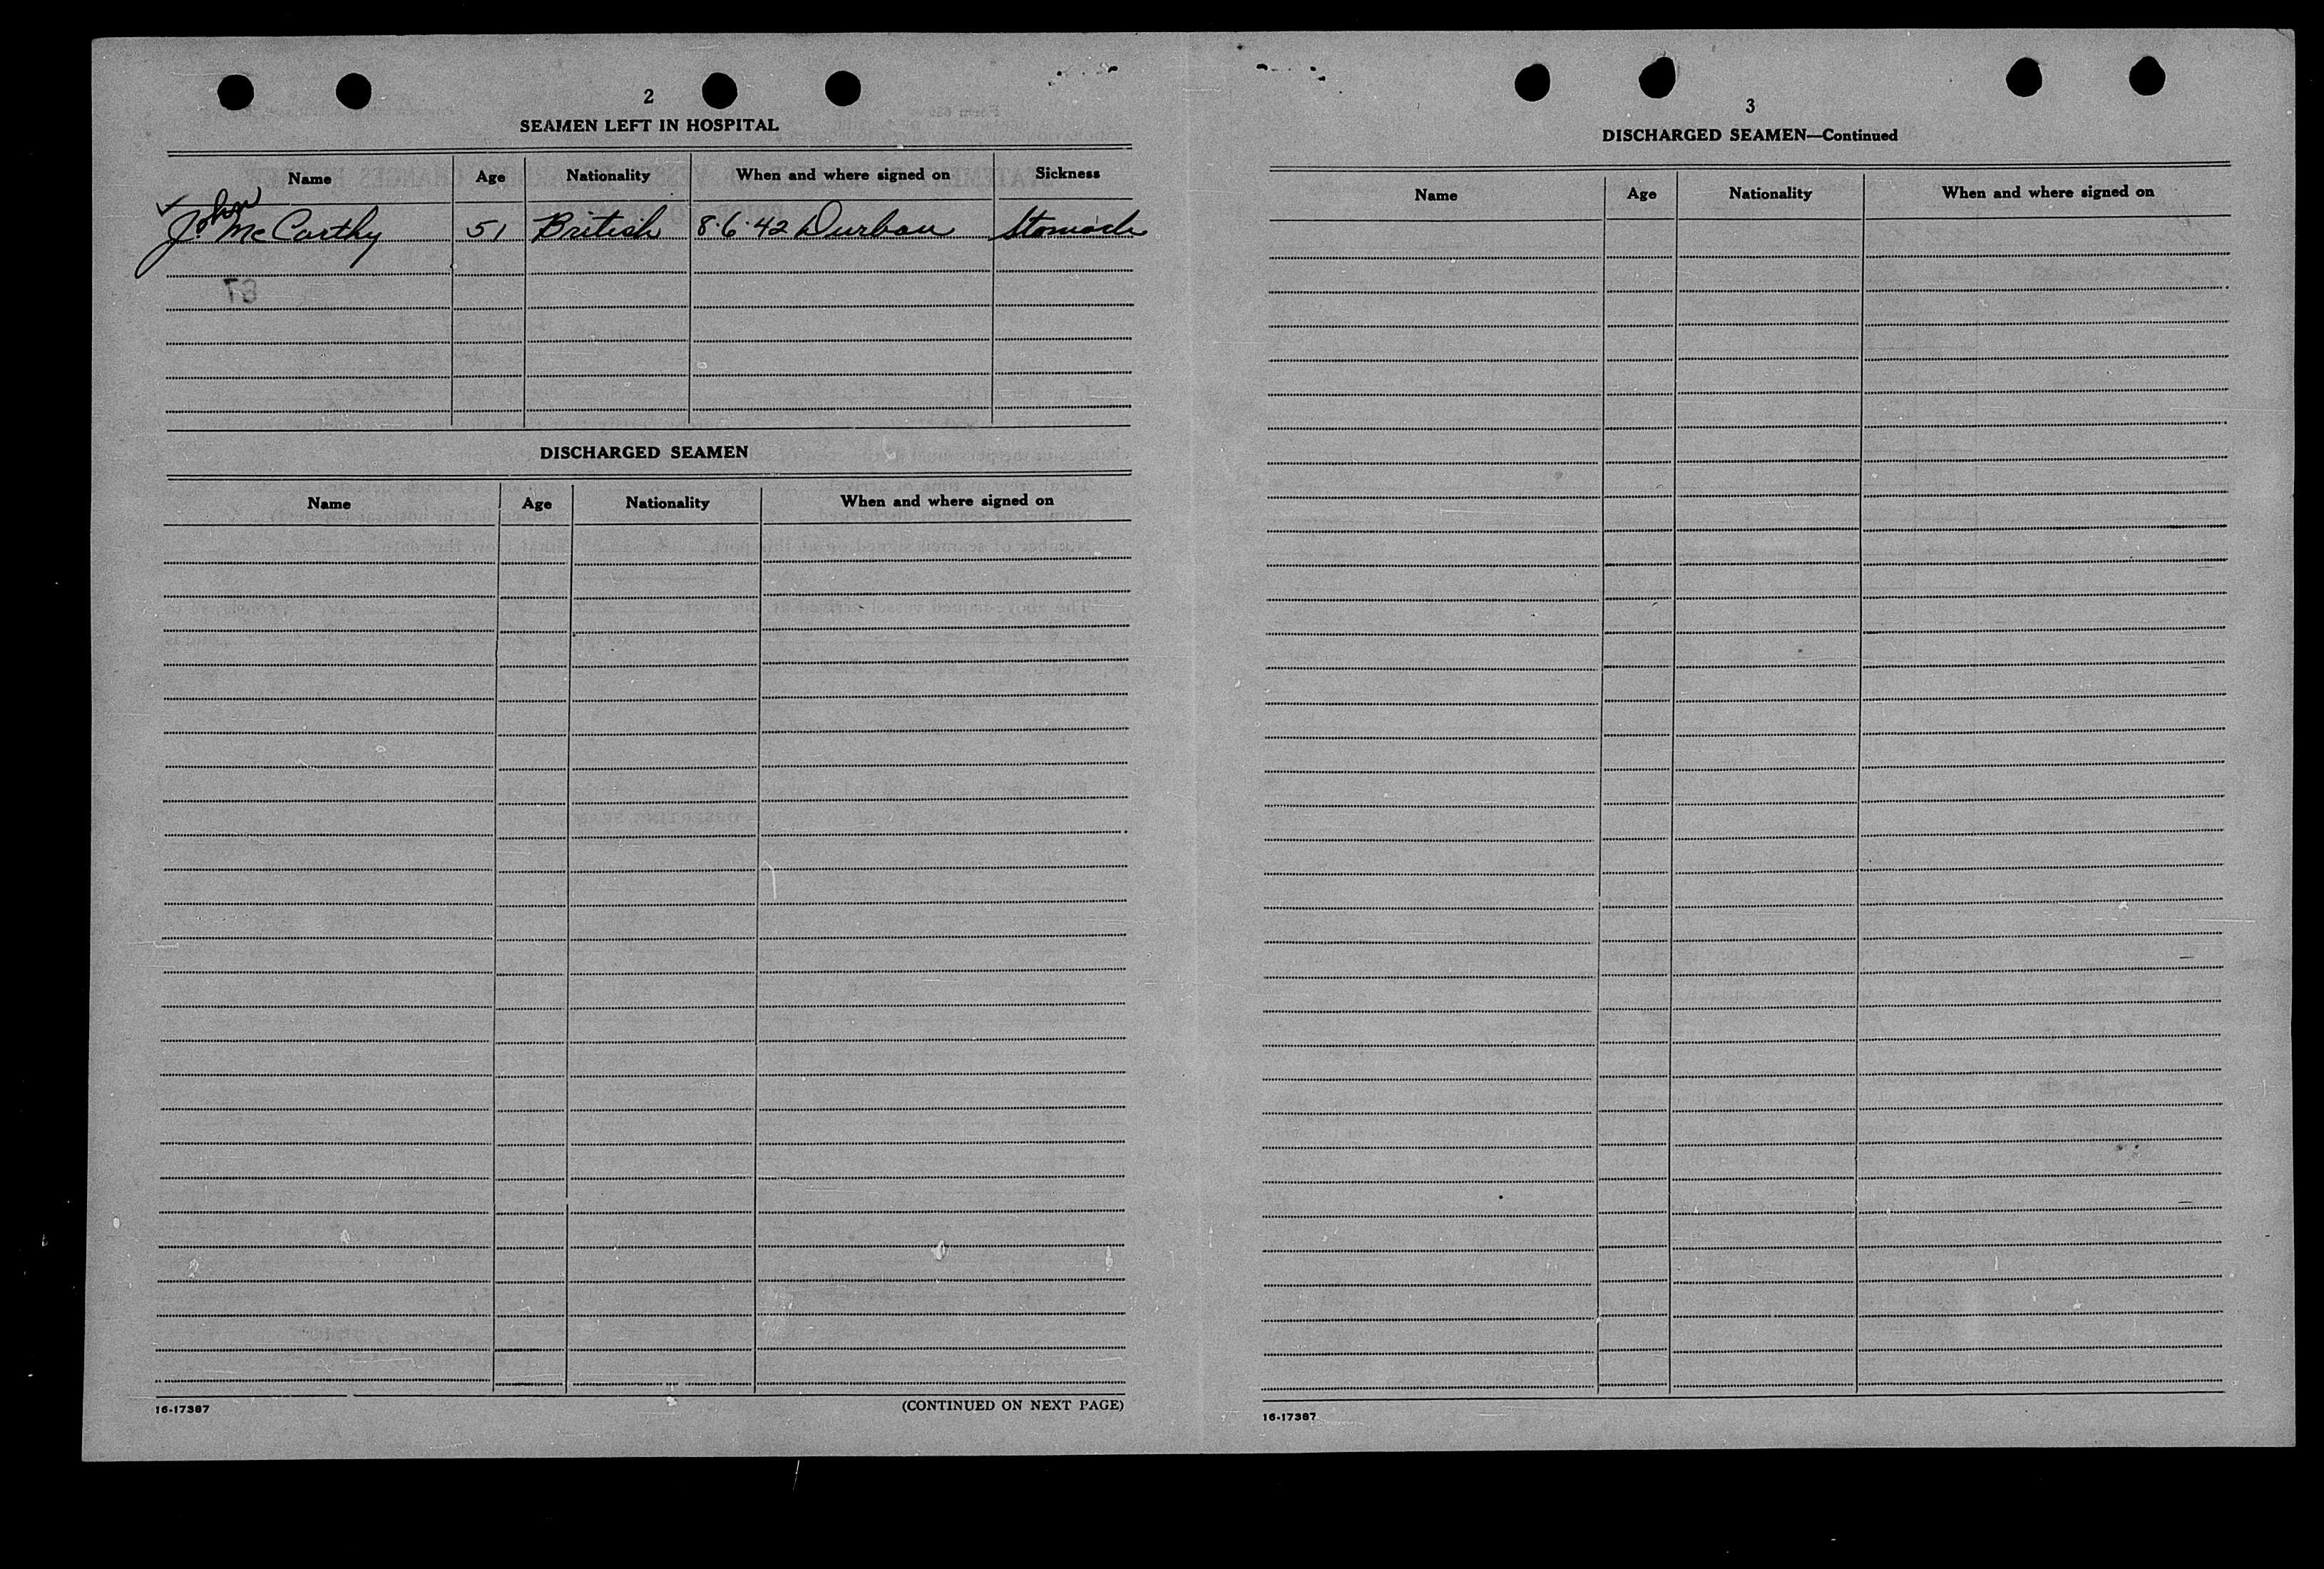 2
SEAMEN LEFT IN HOSPITAL
Name Age Nationality When and where signed on Sickness
✓ John McCarthy 51 British 8.6.42 Durban Stomach
DISCHARGED SEAMEN
Name Age Nationality When and where signed on
16-17387
(CONTINUED ON NEXT PAGE)
3
DISCHARGED SEAMEN—Continued
Name Age Nationality When and where signed on
16-17387